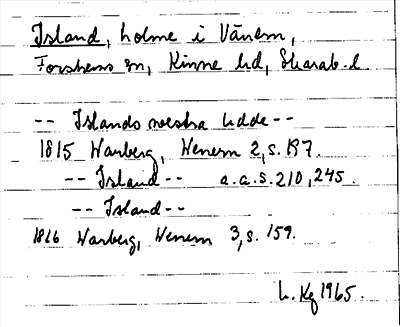 Island, holme i Vänern,
Forshems sn, Kinne hd, Skarab. l.
-- Islands westra Udde --
1815 Warberg, Wenern 2, s. 197.
-- Island -- a.a.s. 210, 245.
-- Island --
1816 Warberg, Wenern 3, s. 159.
L. Kg 1965.